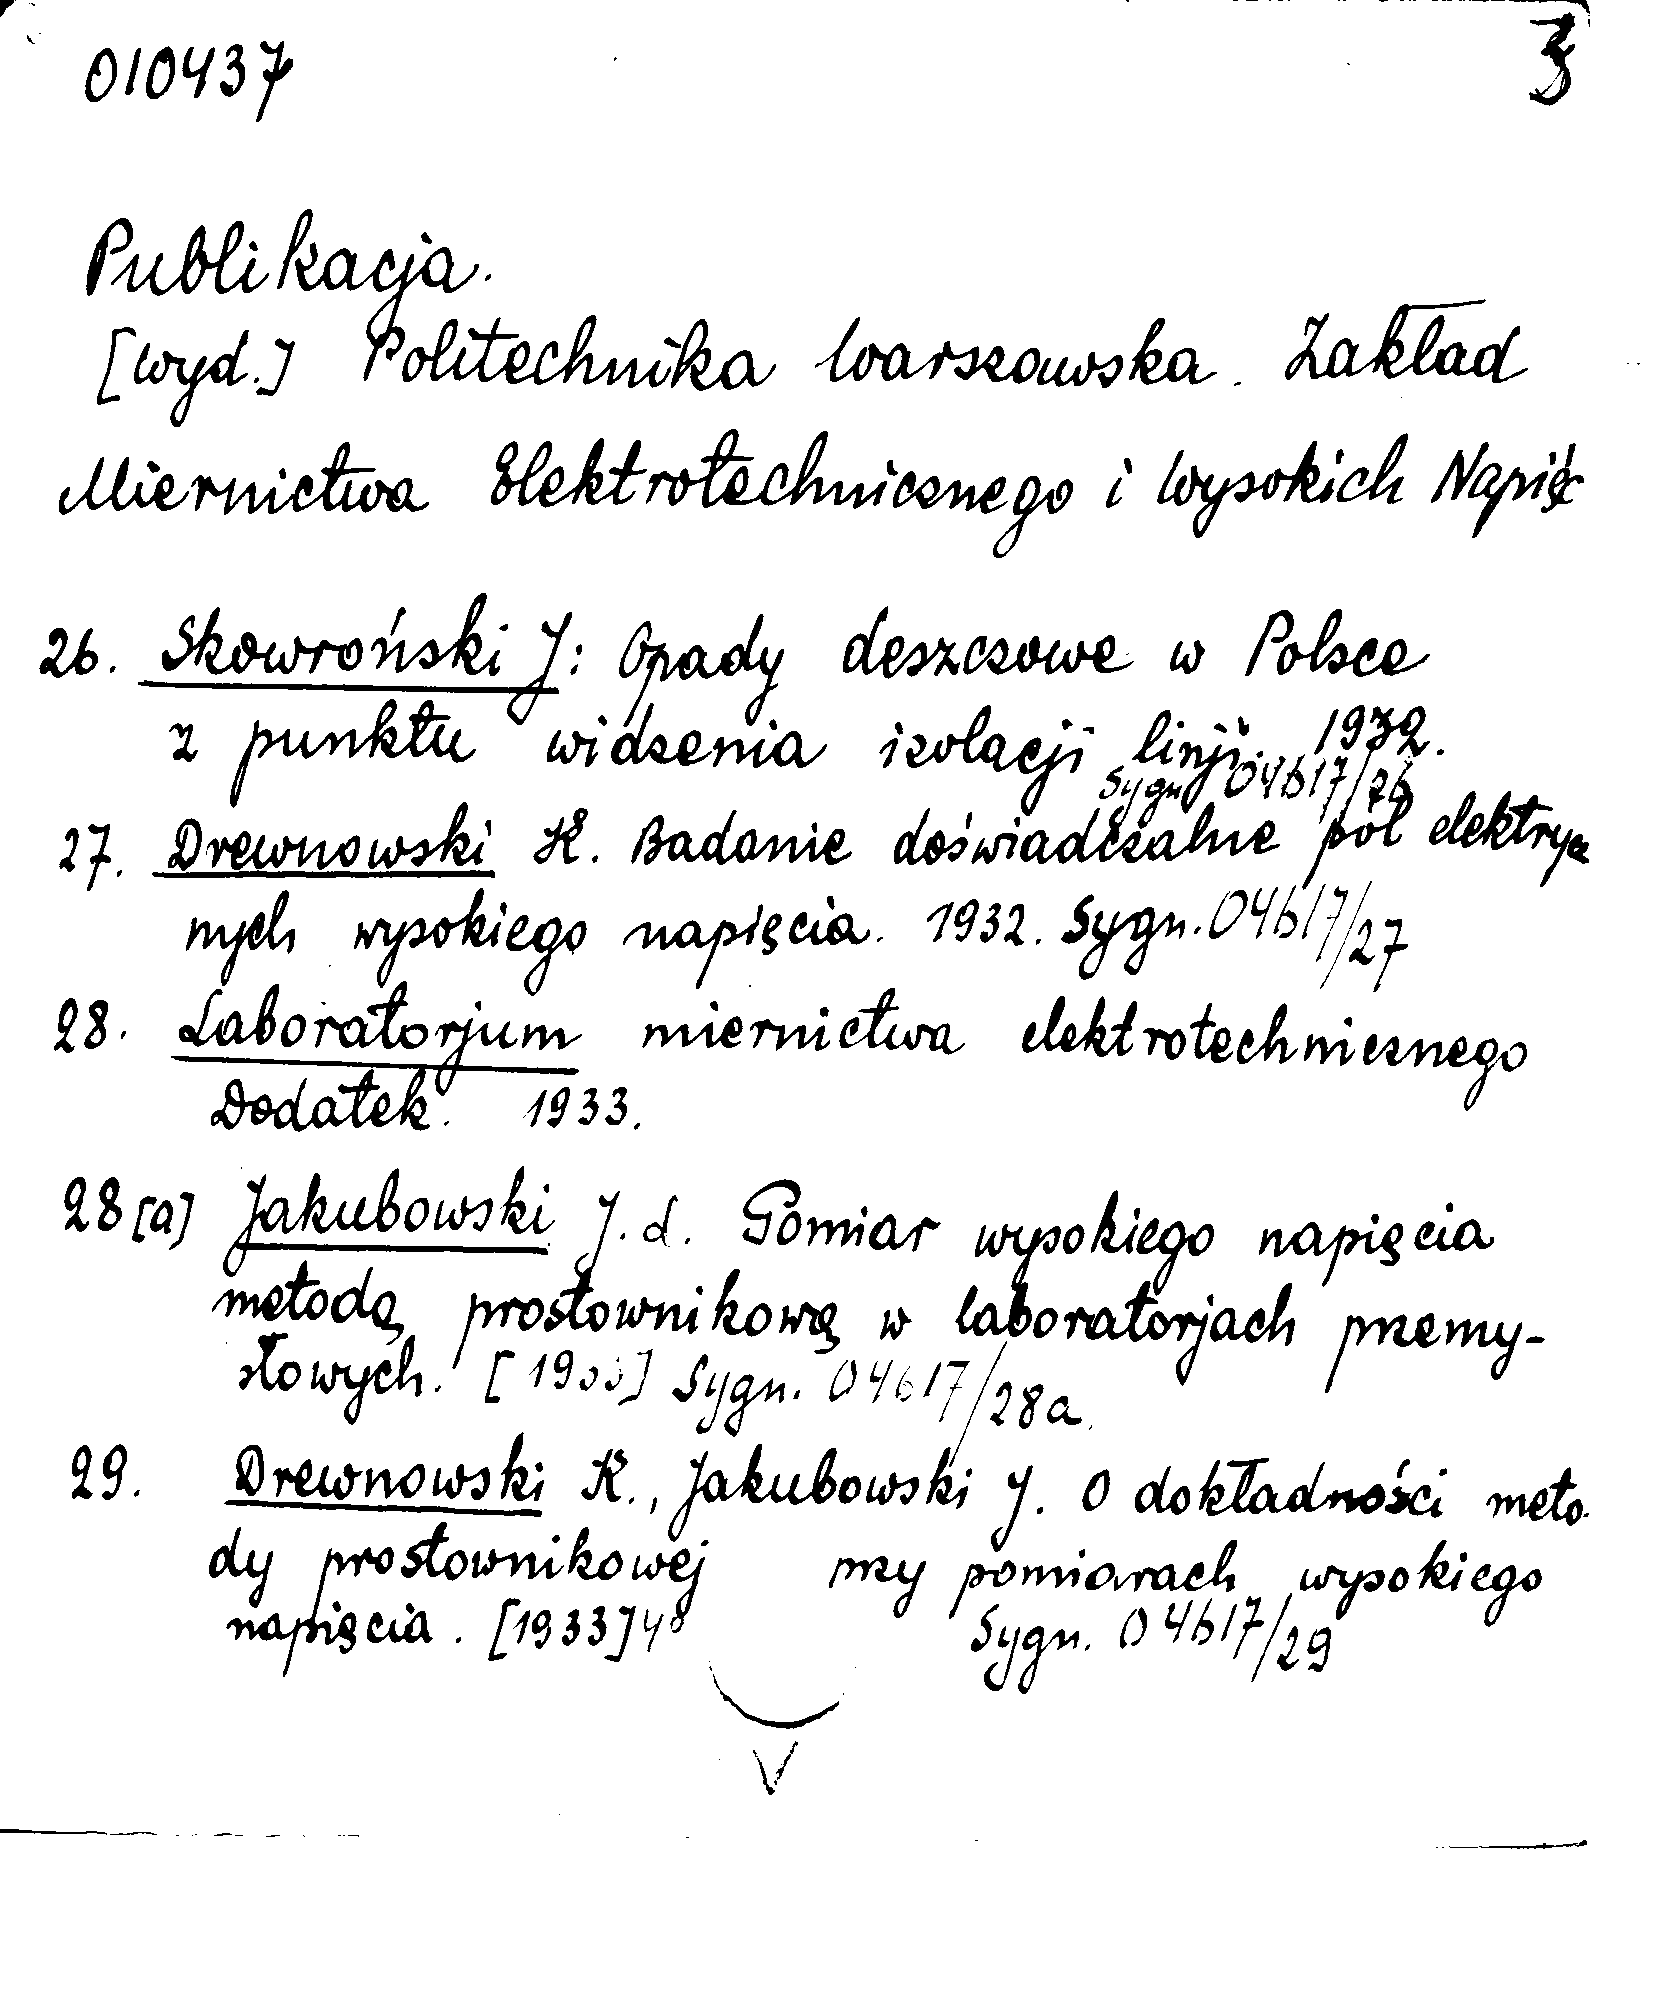 010437 3
Publikacja.
[wyd.] Politechnika Warszawska. Zakład
Miernictwa Elektrotechnicznego i Wysokich Napięć
26. Skowroński J: Opady deszczowe w Polsce
z punktu widzenia izolacji linji. 1932.
Sygn. 04617/26
27. Drewnowski K. Badanie doświadczalne pól elektrycz
nych wysokiego napięcia. 1932. Sygn. 04617/27
28. Laboratorjum miernictwa elektrotechnicznego
Dodatek. 1933.
28[a] Jakubowski J. L. Pomiar wysokiego napięcia
metodą prostownikową w laboratorjach przemy-
słowych. [1933] Sygn. 04617/28a.
29. Drewnowski K., Jakubowski J. O dokładności meto-
dy prostownikowej przy pomiarach wysokiego
napięcia. [1933] Sygn. 04617/29